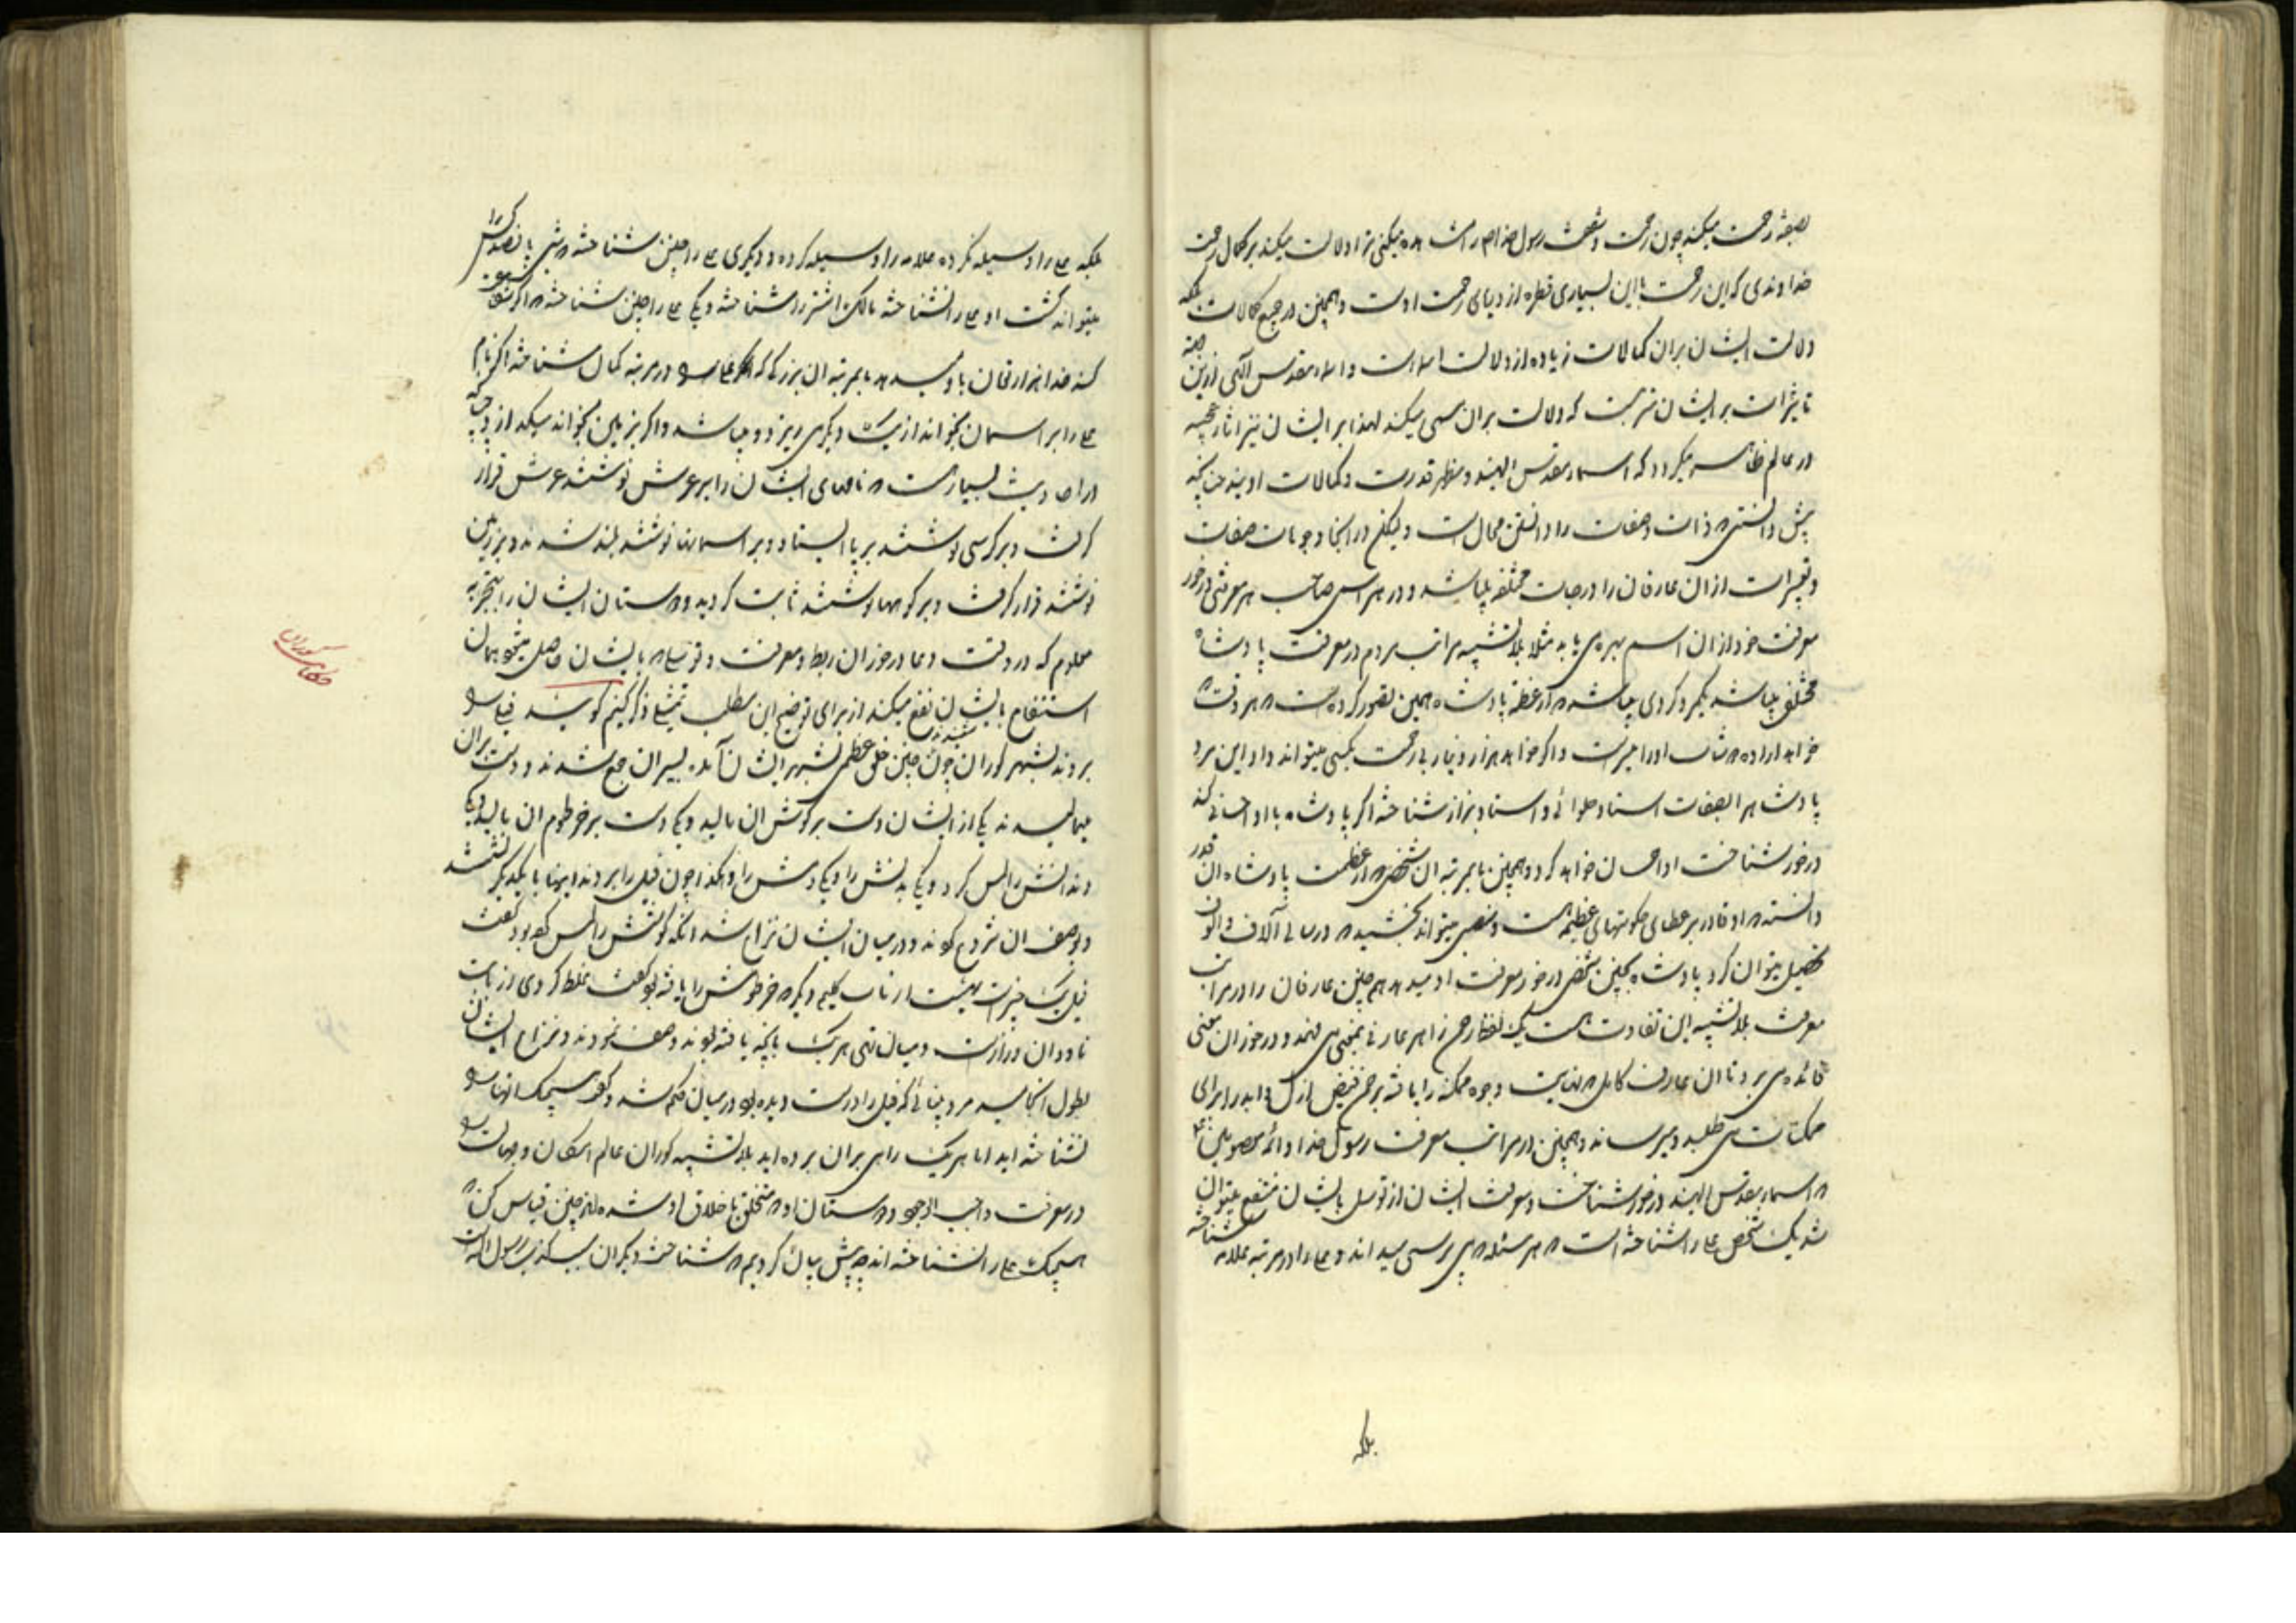 بصفة رحمت میکند چون رحمت و شفقت رسول خدا را مشاهده میکنی ترا دلالت میکند بر کمال رحمت
خداوندی که این رحمت با این بسیاری قطره از دریای رحمت اوست و همچنین در جمیع کمالات بلکه
دلالت ایشان بران کمالات زیاده از دلالت اسماست و اسماء مقدس الهی ازین جهة
تاثیرات بر ایشان مترتبست که دلالت بران مسمی میکنند لهذا بر ایشان نیز اثار عجیبه
در عالم ظاهر میگردد که اسماء مقدس الهیند و مظهر قدرت و کمالات اویند چنانچه
پیش دانستی ذات و صفات را دانستن محال است ولیکن در اینجا وجوهات صفات
و تعبیرات از ان عارفان را درجات مختلفه میباشد و در هر اسمی صاحب هر معرفتی در خور
معرفت خود از ان اسم بهره می یابد مثلا بلا تشبیه مراتب مردم در معرفت پادشاه
مختلف میباشد یکمرد کردی میباشد از عظمة پادشاه همین تصور کرده است هر وقت
خواهد اراده او را میسر است و اگر خواهد هزار دینار بزحمت بکسی میتواند داد این مرد
پادشاه را بصفات استاد حلوائی و استاد بزاز شناخته اگر پادشاه با او احسانی کند
در خور شناخت او احسان خواهد کرد و همچنین تا بمرتبه ان شخصی از عظمت پادشاه ان قدر
دانسته او قادر بر عطای حکومتهای عظیمه است و منصبی میتواند بخشید در سالی آلاف و الوف
تحصیل میتوان کرد پادشاه بچنین شخصی در خور معرفت او میدهد همچنین عارفان را در مراتب
معرفت بلا تشبیه این تفاوت هست یک لفظ رحمن را هر عارفی بمعنی می فهمد و در خور ان معنی
فائده می برد تا ان عارف کامل نهایت وجوه ممکنه را یافته برحمن فیض ازل و ابد را برای
ممکنات می طلبد و میرساند و همچنین در مراتب معرفت رسول خدا و ائمه معصومین
اسماء مقدس الهیند در خور شناخت و معرفت ایشان از توسل بایشان منتفع میتوان
شد یک شخص علی را شناخته است هر مسئله می پرسی میداند و علی را در مرتبه علامه شناخته
بلکه
بلکه علی را وسیله نکرده علامه را وسیله کرده و دیگری علی را چنین شناخته
میتواند کشت او علی را نشناخته مالک اشتر را شناخته و یکی علی را چنین شناخته اگر
کند خدا هزار تومان باو میدهد تا بمرتبه ان بزرگی که در مرتبه کمال شناخته اگر نام
علی را بر اسمان بخواند از یکدیگر می ریزد و میپاشد و اگر بر زمین بخواند میگدازد چنانچه
در احادیث بسیارست نامهای ایشان را بر عرش نوشتند عرش قرار
گرفت و بر کرسی نوشتند بر پا ایستاد و بر اسمانها نوشتند بلند شدند و بر زمین
نوشتند قرار گرفت و بر کوهها نوشتند ثابت گردید و دوستان ایشان را بتجربه
معلوم که در وقت دعا در خور ان ربط و معرفت و توسلی بایشان حاصل میشود همان
استشفاع بایشان نفع میکند از برای توضیح این مطلب تمثیلی ذکر کنیم گویند فیلی
بردند بشهر کوران چون شنیدند چنین خلق عظمی بشهر ایشان آمده بسر ان جمع شدند و دست بران
میمالیدند یکی از ایشان دست بر کوش ان مالید و یکی دست بر خرطوم ان مالید و یکی
دندانش را لمس کرد و یکی بدنش را و یکی دمش را و هکذا چون فیل را بردند اینها با یکدیگر نشستند
و بوصف ان شروع کردند و در میان ایشان نزاع شد انکه کوشش را لمس کرده بود گفت
فیل یک چیزیست پهنست از باب گلیم دیگری خرطومش را یافته بود گفت غلط کردی از باب
ناودان درازست و میان تهی هر یک بانچه یافته بودند وصف نمودند و نزاع ایشان
بطول انجامید مرد بینائی که فیل را درست دیده بود در میان حکم شد و گفت هیچیک انرا
نشناخته اید اما هر یک راهی بران برده اید بلا تشبیه کوران عالم امکان و جهالت
در معرفت واجب الوجود و دوستان او متخلق باخلاق او شده اند چنین قیاس کن
هیچیک علی را نشناخته اند چنانچه پیش بیان کردیم شناخت دیگران
حکایت کوران